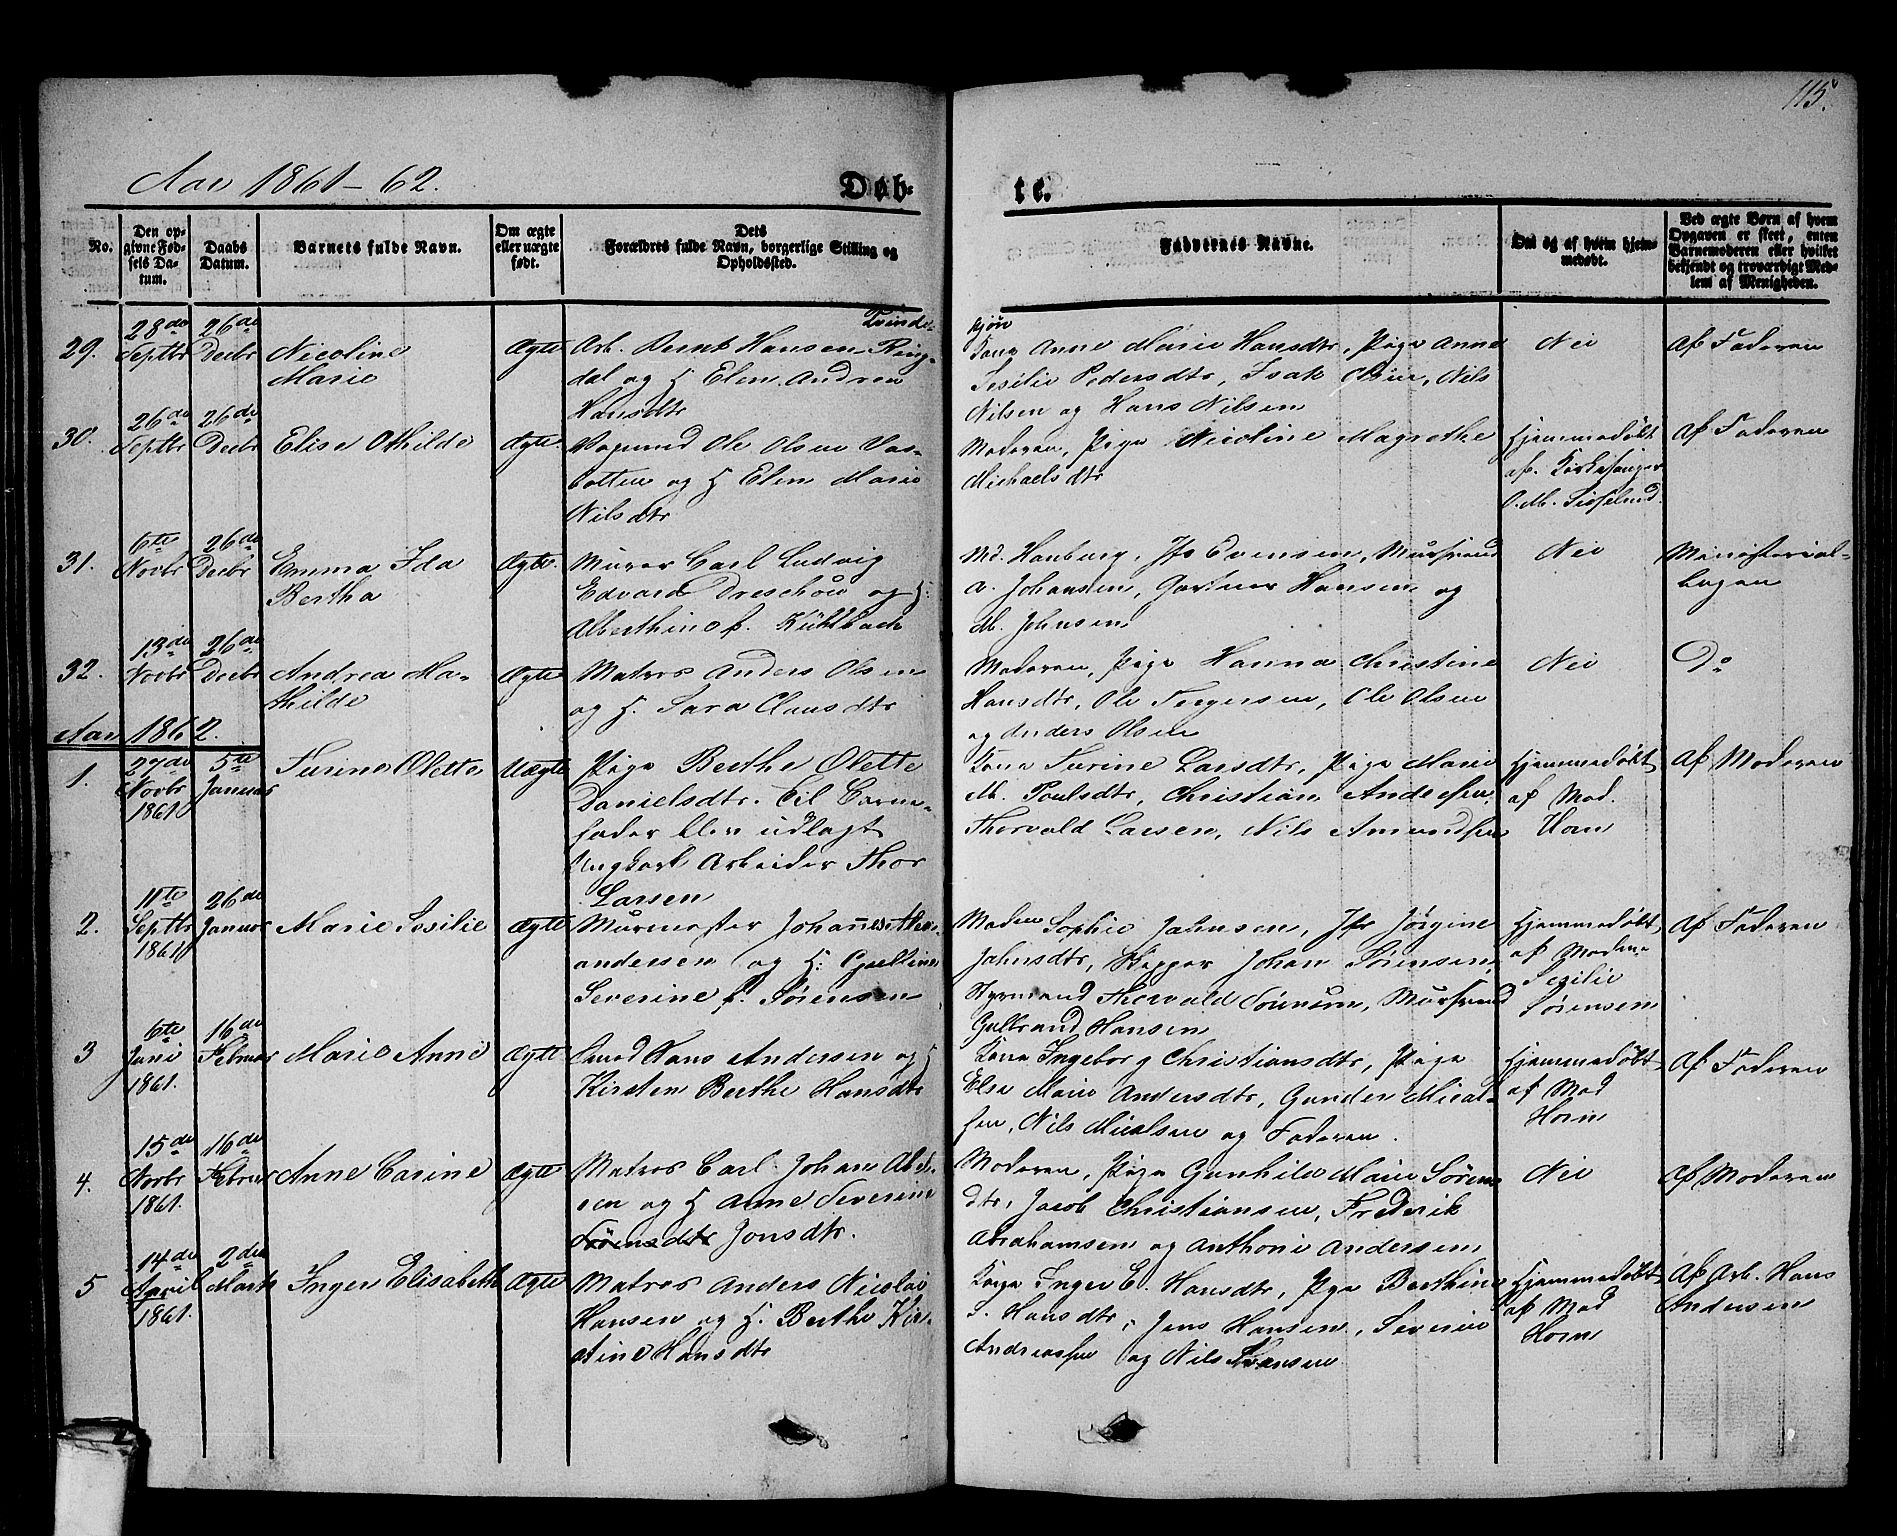 115.
Aar 1861-62.
Døb-
te.
No.
Den op-
givne Fød-
sels Da-
tum.
Daabs
Datum.
Barnets fulde Navn.
Om ægte
eller uægte
født.
Dets
Forældres fulde Navn, borgerlige Stilling og
Opholdssted.
Faddernes Navne.
Om og af hvem hjem-
medøbt.
Ved ægte Børn af hvem
Opgaven er skeet, enten
Barnemoderen eller hvilket
bekjendt og troværdigt Med-
lem af Menigheden.
29.
28de
Septbr
26de
Decbr
Nicoline
Marie
Ægte
Arb. Bernt Hansen
dal og H Elen Andrea
Hansdtr
Kone Anne Marie Hansdtr, Pige Anne
Sesilie Pedersdtr, Isak Nils
Nilsen og Hans Nilsen
Nei
Af Faderen
30.
26de
Septbr
26de
Decbr
Elise Othilde
Ægte
Ole Olsen Vas-
botten og H Elen Marie
Nilsdtr
Moderen, Pige Nicoline Magrethe
Michaelsdtr
Hjemmedøbt
af Kirkesanger
O. M.
Af Faderen
31.
6te
Novbr
26de
Decbr
Emma Ida
Bertha
Ægte
Murer Carl Ludvig
Edvard Dreschow og H:
Albertine f. Kühlbach
Md. Hamburg, Jfr Evensen, Mursvend
A. Johansen, Gartner Hansen og
M. Johnsen
Nei
Ministerial-
bogen
32.
13de
Novbr
26de
Decbr
Andrea Ma-
thilde
Ægte
Matros Anders Olsen
og H. Sara Clausdtr
Moderen, Pige Hanna Christine
Hansdtr, Ole Torgersen, Ole Olsen
og Anders Olsen
Nei
Do
Aar 1862.
1.
27de
Novbr
1861
5te
Januar
Turine Olette
Uægte
Pige Berthe Olette
Danielsdtr. Til Barne-
fader blev udlagt
Ungkarl Arbeider Thor
Larsen
Kone Turine Larsdtr, Pige Marie
M. Poulsdtr, Christian Andersen,
Thorvald Larsen, Nils Amundsen
Hjemmedøbt
af Mad.
Horn
Af Moderen
2.
11te
Septbr
1861
26de
Januar
Marie Sesilie
Ægte
Murmester Johannes Alex-
andersen og H:
Severine f. Sørensen
Madm Sophie Jahnsen, Jfr Jørgine
Jahnsdtr, Skipper Johan Sørensen,
Styrmand Thorvald Sørensen, Mursvend
Gulbrand Hansen
Hjemmedøbt
af Madme
Sesilie
Sørensen
Af Faderen
3
6te
Juni
1861.
16de
Februar
Marie Anne
Ægte
Smed Hans Andersen og H
Kirsten Berthe Hansdtr
Kone Ingeborg Christiansdtr, Pige
Else Marie Andersdtr, Gunder Mical-
sen, Nils Micalsen og Faderen.
Hjemmedøbt
af Mad
Horn
Af Faderen
4.
15de
Novbr
1861.
16de
Februar
Anne Carine
Ægte
Matros Carl Johan
sen og H Anne Severine
Sørensdtr Jonsdtr.
Moderen, Pige Gunhild Marie Sørens-
dtr, Jacob Christiansen, Frederik
Abrahamsen og Anthoni Andersen
Nei
Af Moderen
5
14de
April
1861.
2den
Marts
Inger Elisabeth
Ægte
Matros Anders Nicolai
Hansen og H. Berthe Kir-
stine Hansdtr
Kone Inger E. Hansdtr, Pige Berthine
S. Hansdtr, Jens Hansen, Severin
Andreassen og Nils Hansen
Hjemmedøbt
af Mad
Horn
Af Arb. Hans
Andersen